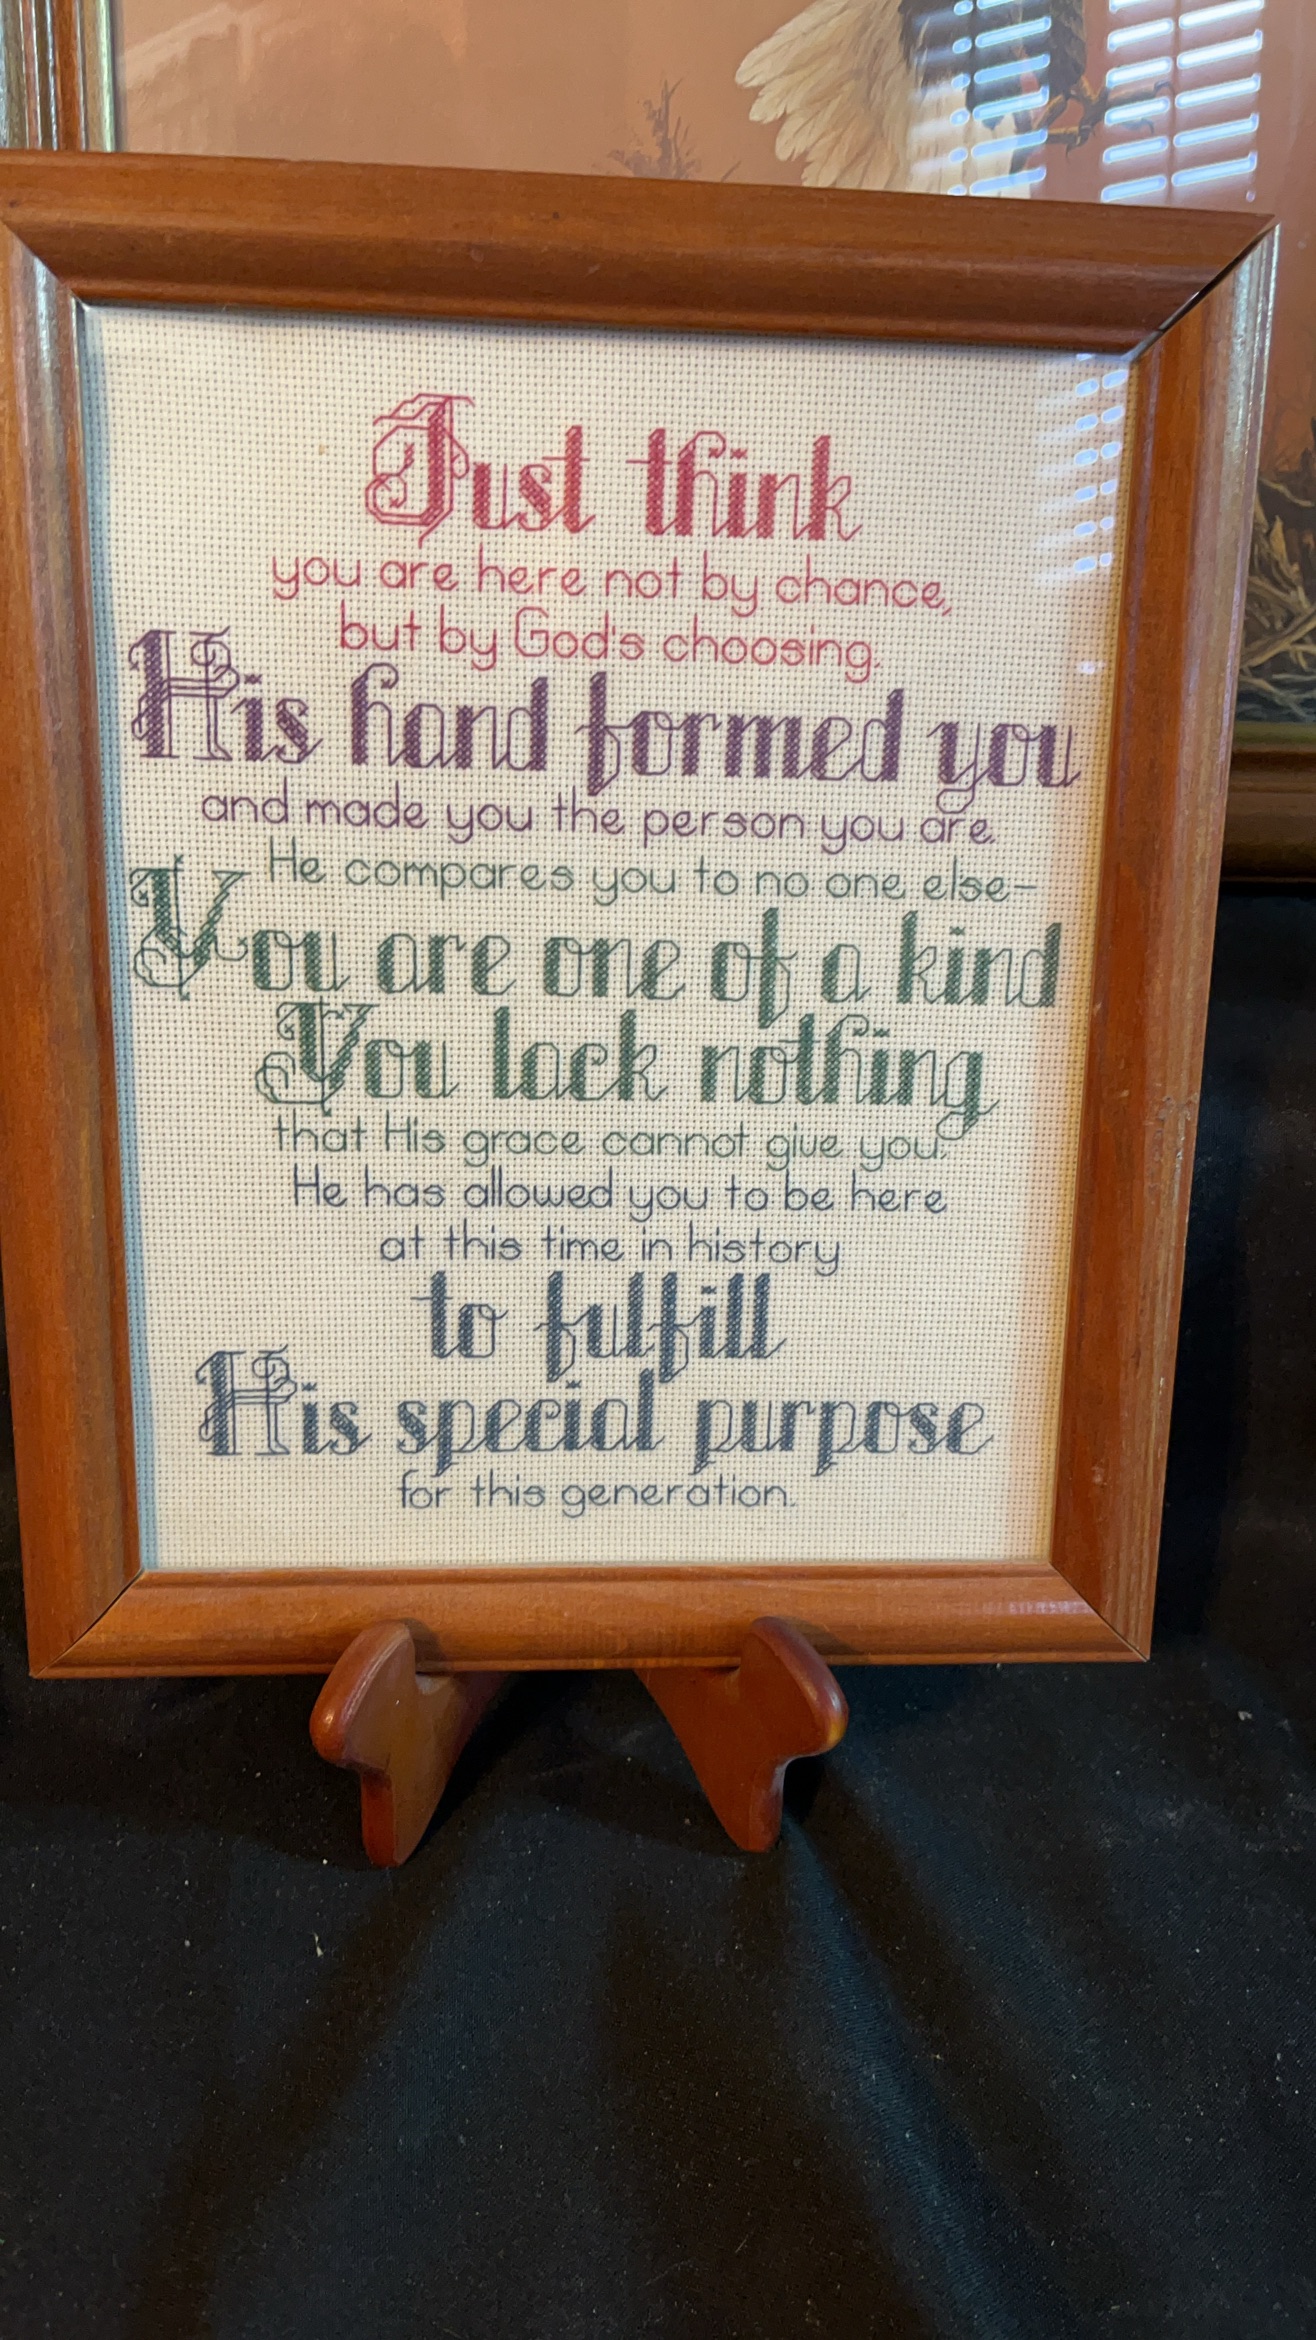 Just think
you are here not by chance,
but by God's choosing.
His hand formed you
and made you the person you are.
He compares you to no one else-
You are one of a kind
You lack nothing
that His grace cannot give you.
He has allowed you to be here
at this time in history
to fulfill
His special purpose
for this generation.